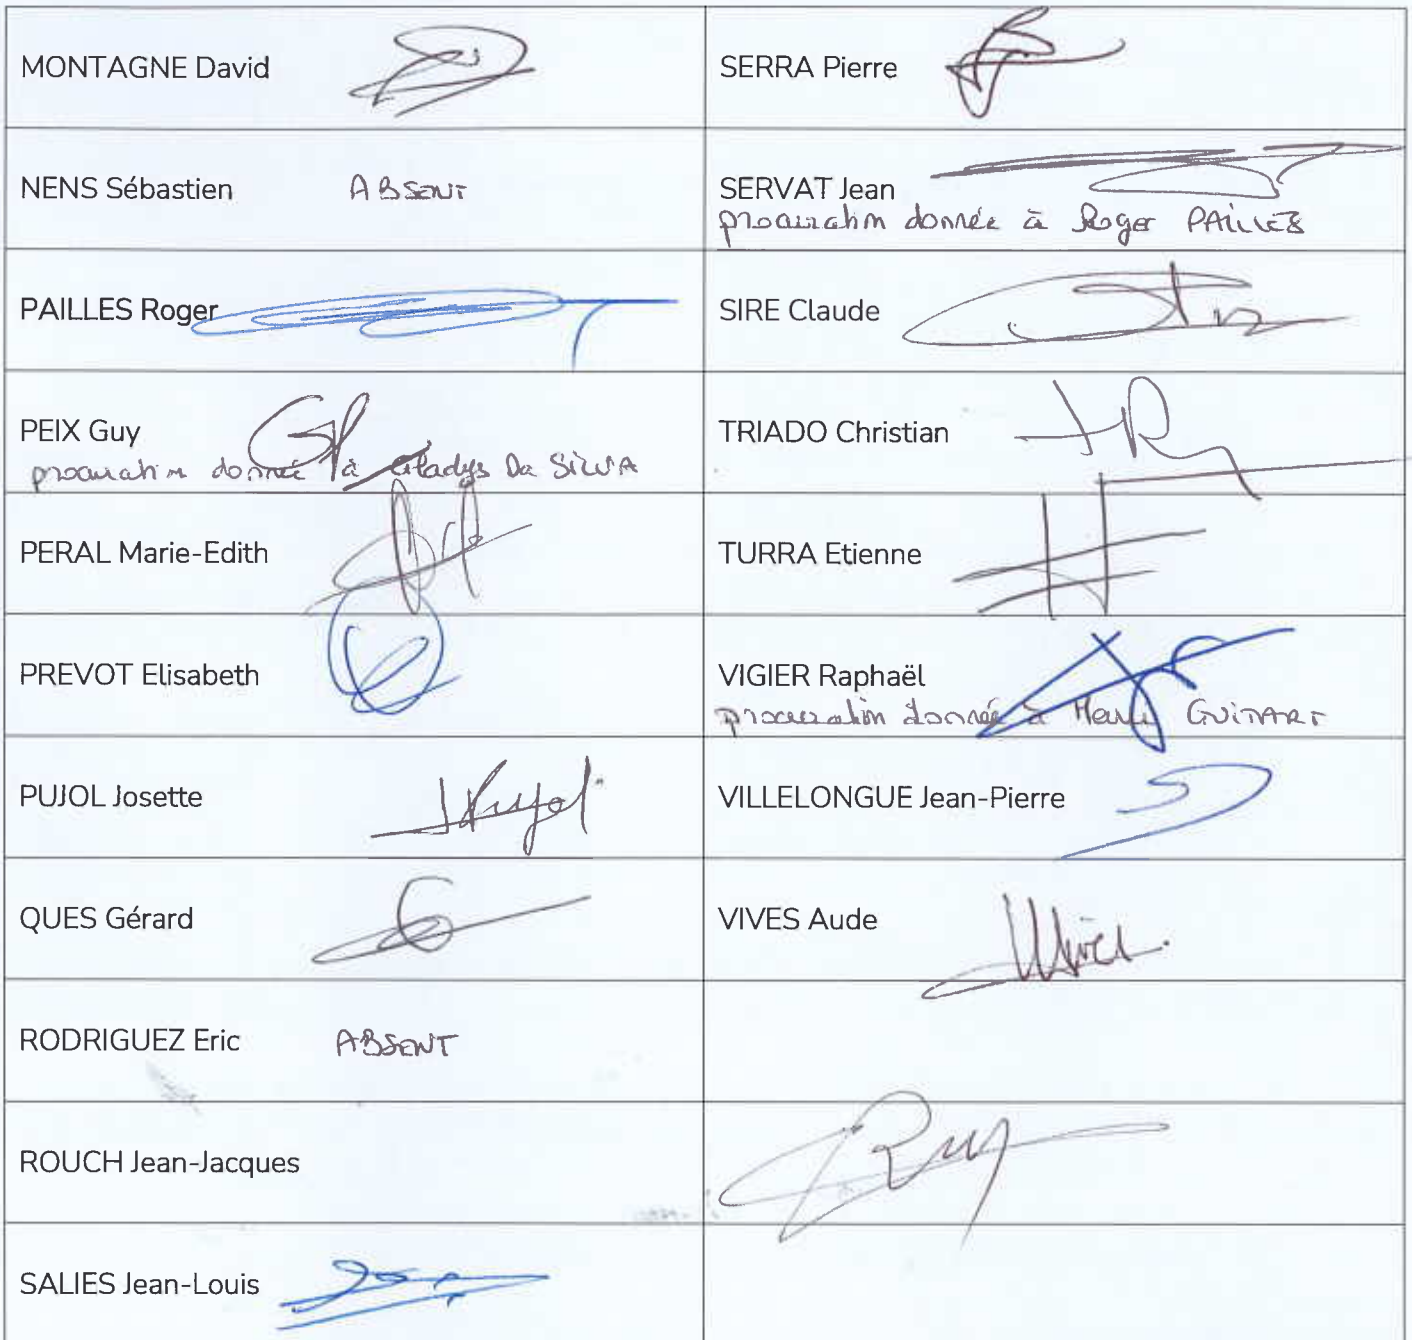 MONTAGNE David
SERRA Pierre
NENS Sébastien ABSENT
SERVAT Jean
procuration donnée à Roger PAILLES
PAILLES Roger
SIRE Claude
PEIX Guy
procuration donnée à Gladys Da SILVA
TRIADO Christian
PERAL Marie-Edith
TURRA Etienne
PREVOT Elisabeth
VIGIER Raphaël
procuration donnée à GUITART
PUJOL Josette JPujol
VILLELONGUE Jean-Pierre
QUES Gérard
VIVES Aude
RODRIGUEZ Eric ABSENT
ROUCH Jean-Jacques
SALIES Jean-Louis